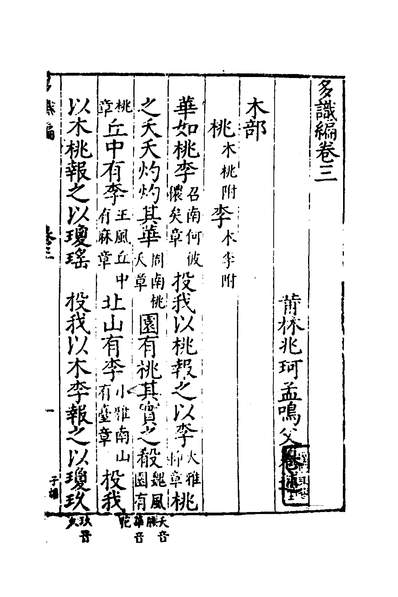 多識編卷三
莆林兆珂孟鳴父
木部
桃木桃附李木李附
華如桃李召南何彼襛矣章投我以桃報之以李大雅抑章桃
之夭夭灼灼其華周南桃夭章園有桃其實之殽魏風園有
桃章丘中有李王風丘中有麻章北山有李小雅南山有臺章投我
以木桃報之以瓊瑤 投我以木李報之以瓊玖
夭音
華音
玖音
多識編 卷三 一